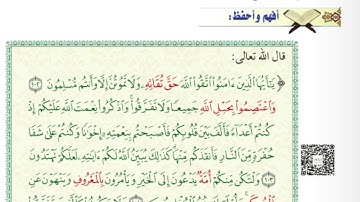 أفهم وأحفظ:
قال الله تعالى:
﴿ يَٰٓأَيُّهَا ٱلَّذِينَ ءَامَنُواْ ٱتَّقُواْ ٱللَّهَ حَقَّ تُقَاتِهِۦ وَلَا تَمُوتُنَّ إِلَّا وَأَنتُم مُّسْلِمُونَ ١٠٢
وَٱعْتَصِمُواْ بِحَبْلِ ٱللَّهِ جَمِيعًا وَلَا تَفَرَّقُواْ وَٱذْكُرُواْ نِعْمَتَ ٱللَّهِ عَلَيْكُمْ إِذْ
كُنتُمْ أَعْدَآءً فَأَلَّفَ بَيْنَ قُلُوبِكُمْ فَأَصْبَحْتُم بِنِعْمَتِهِۦٓ إِخْوَٰنًا وَكُنتُمْ عَلَىٰ شَفَا
حُفْرَةٍ مِّنَ ٱلنَّارِ فَأَنقَذَكُم مِّنْهَا كَذَٰلِكَ يُبَيِّنُ ٱللَّهُ لَكُمْ ءَايَٰتِهِۦ لَعَلَّكُمْ تَهْتَدُونَ
١٠٣ وَلْتَكُن مِّنكُمْ أُمَّةٌ يَدْعُونَ إِلَى ٱلْخَيْرِ وَيَأْمُرُونَ بِٱلْمَعْرُوفِ وَيَنْهَوْنَ عَنِ